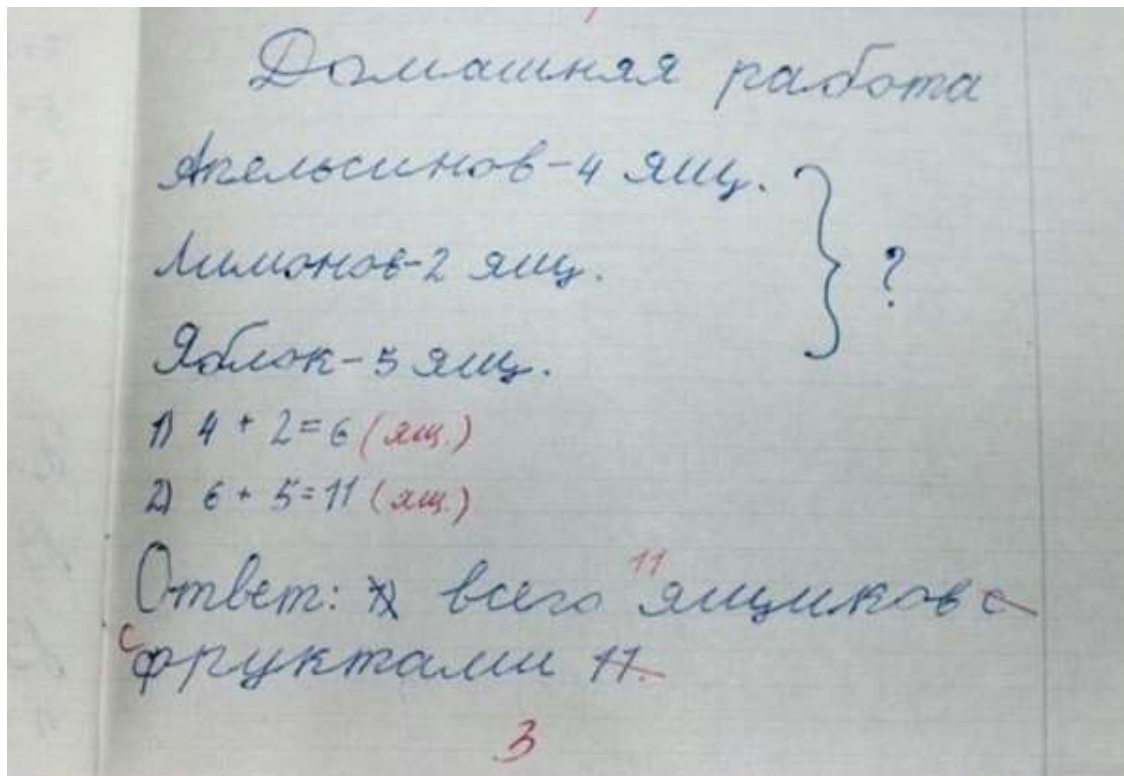 Домашняя работа
Апельсинов-4 ящ.
Лимонов-2 ящ.
?
Яблок-5 ящ.
1) 4 + 2=6 (ящ.)
2) 6 + 5=11 (ящ.)
11
Ответ: всего ящиков с
с фруктами 11.
3